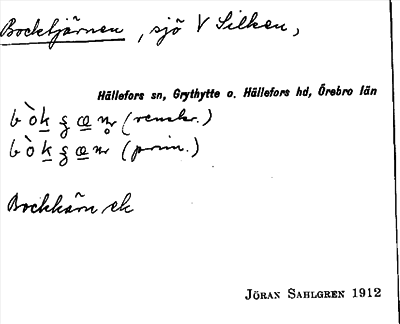 Bocktjärnen, sjö V Silken,
Hällefors sn, Grythytte o. Hällefors hd, Örebro län
(renskr.)
(prim.)
Bocktärn ek
Jöran Sahlgren 1912